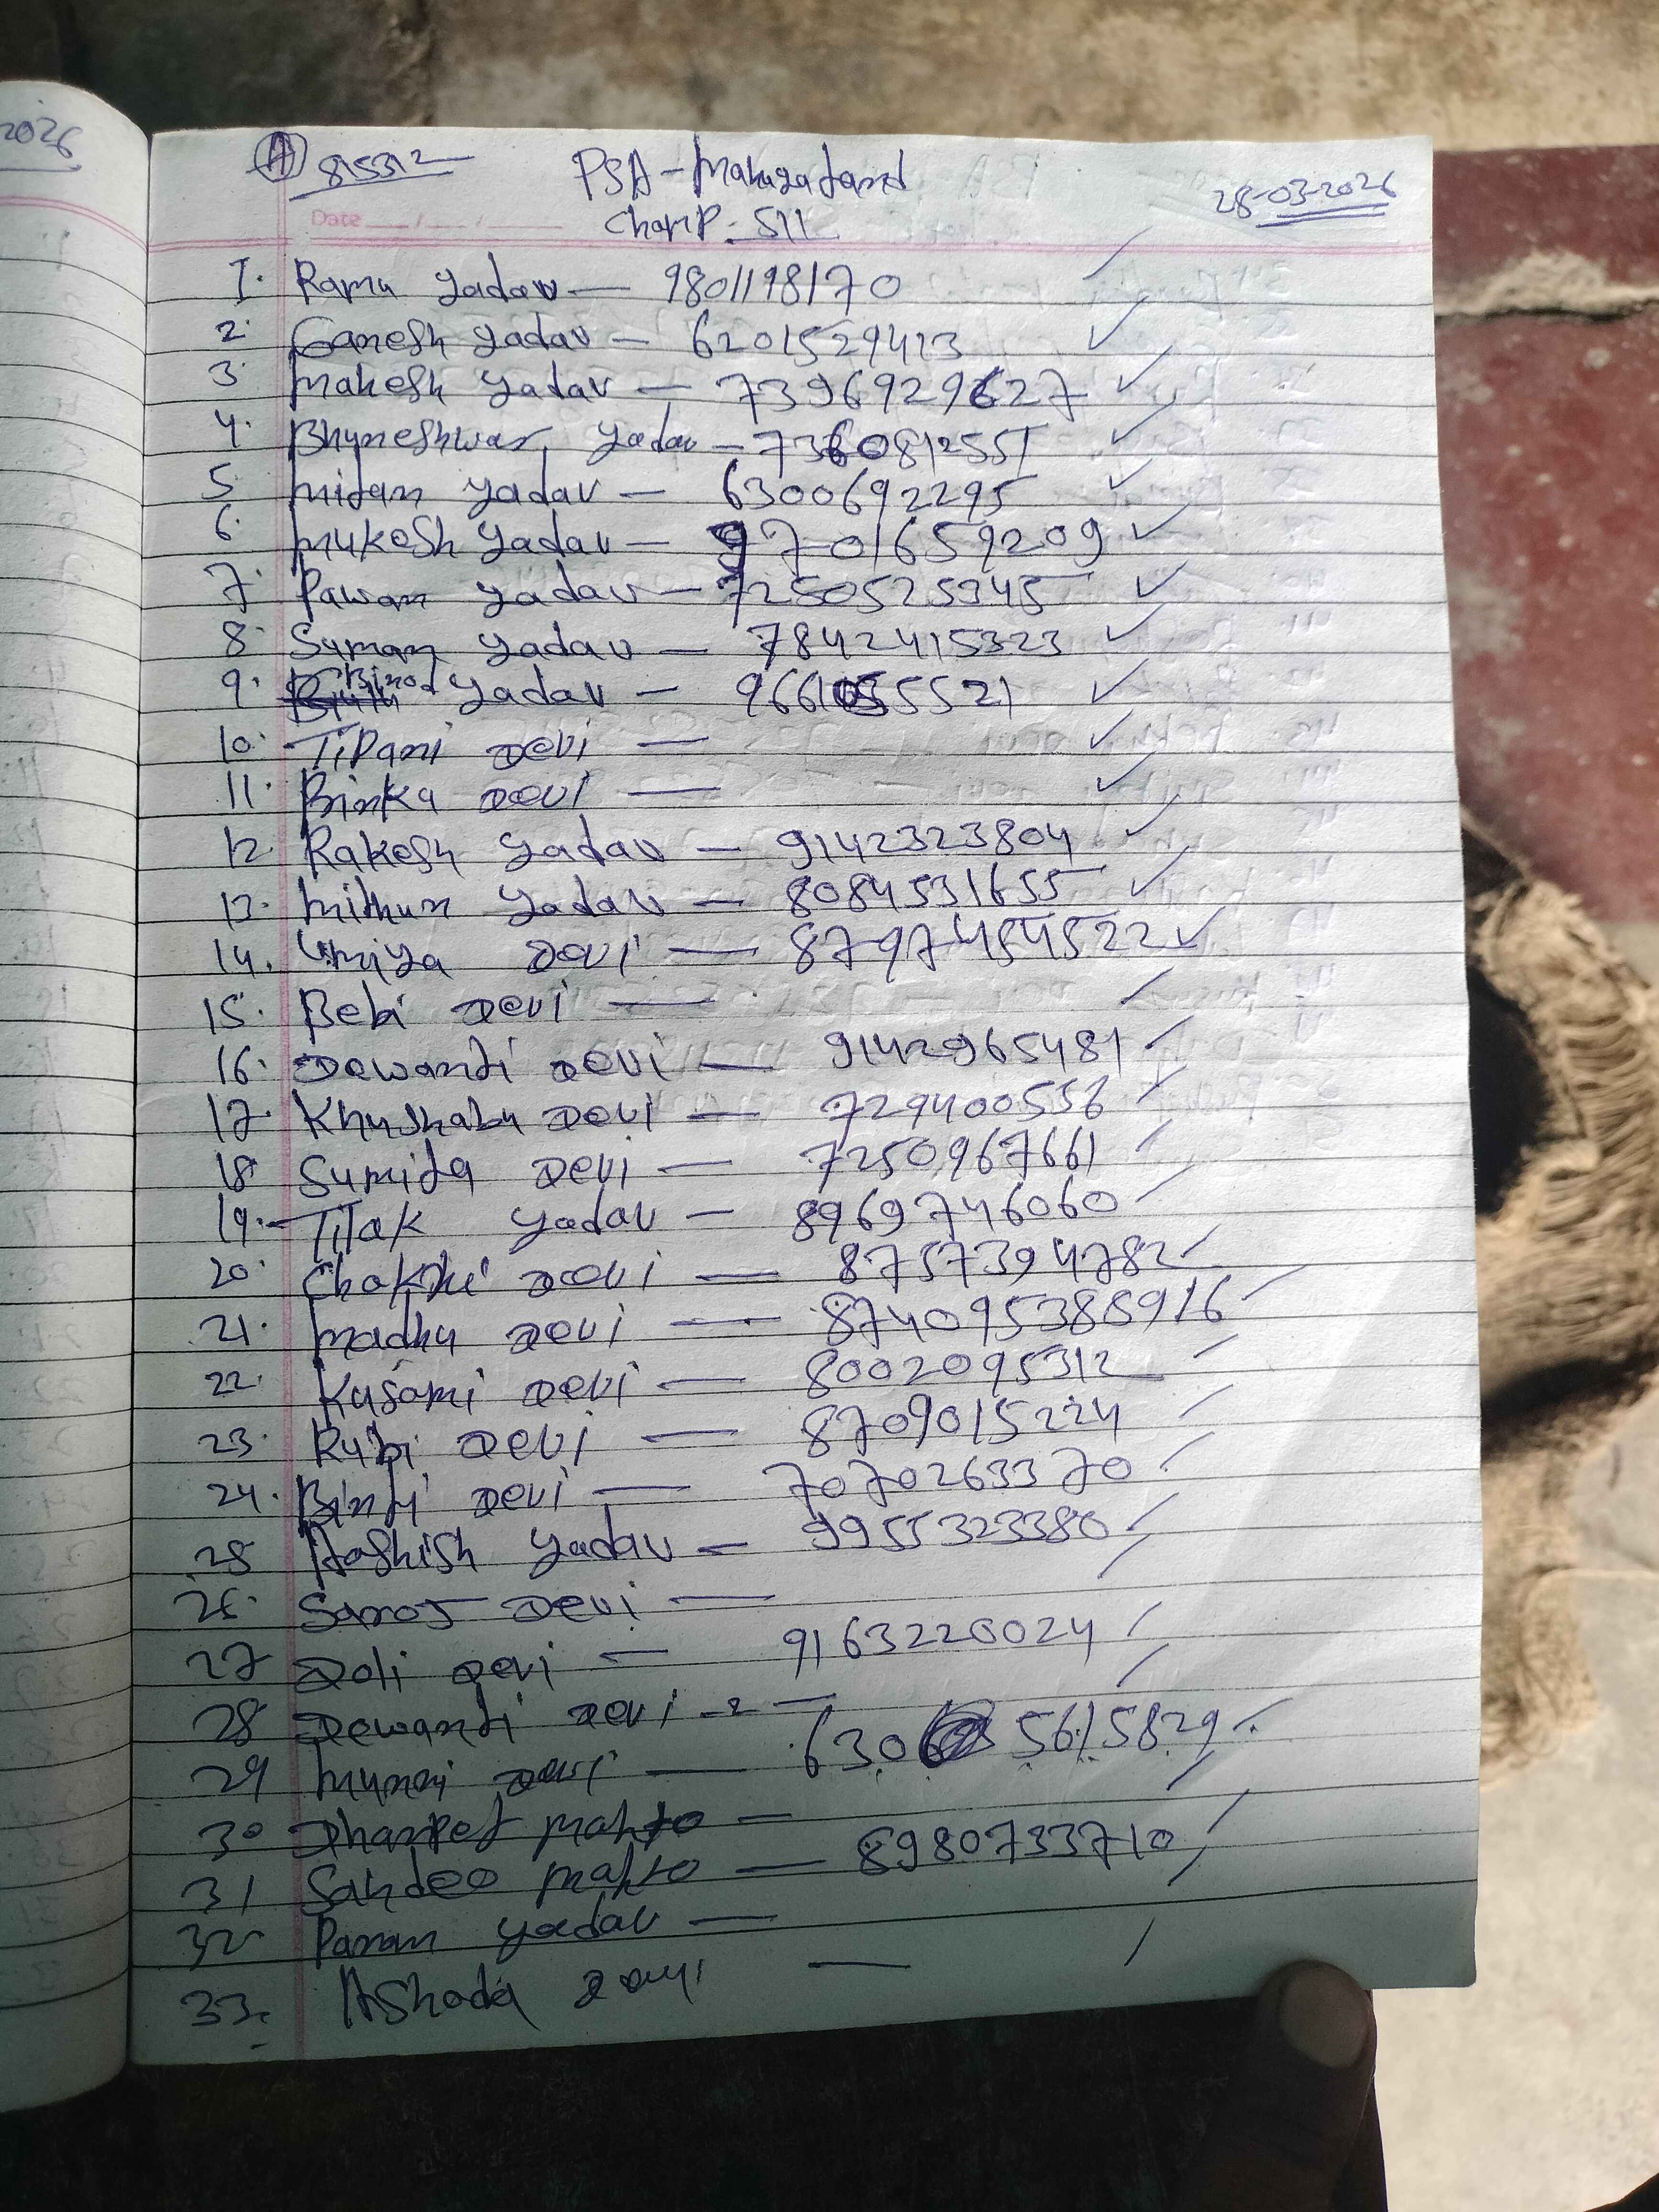 2026
A 815312 PSA - Mahuyatand 28-03-2026
Date __/__/____ Charip - 511
1. Ramu yadav — 9801198170
2. Ganesh yadav — 6201529413
3. Mahesh yadav — 7396929627
4. Bhyneshwar yadav — 7360812551
5. Mitan yadav — 6300692295
6. Mukesh yadav — 9701659209
7. Pawan yadav — 7250525345
8. Suman yadav — 7842415323
9. Binod yadav — 9661055521
10. Tipani Devi —
11. Binka Devi —
12. Rakesh yadav — 9142323804
13. Mithun yadav — 8084531655
14. Umiya Devi — 8797454522
15. Bebi Devi —
16. Dewanti Devi — 9142965481
17. Khushabu Devi — 729400556
18 Sumita Devi — 7250967661
19. Tilak yadav — 8969746060
20. Devi — 8757394782
21. Madhu Devi — 874095388916
22. Kusami Devi — 8002095312
23. Rubi Devi — 8709015224
24. Binti Devi — 7070263370
25 Aashish yadav — 9955323380
26. Saroj Devi —
27 Doli Devi — 9163220024
28 Dewanti Devi —
29 Munni Devi — 6306 5615829
30 Dhanpet mahto —
31 Sahdeo mahto — 8980733710
32 Paran yadav —
33. Ashada Devi —